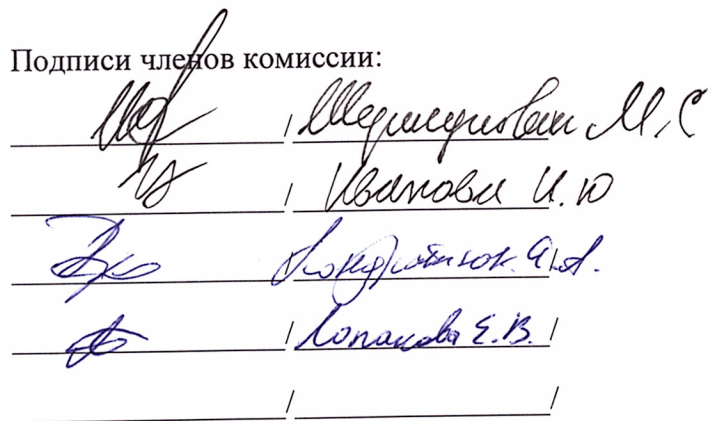 Подписи членов комиссии:
/ М.С
/ Иванова И.Ю
Кондратюк. А.А. /
/ Лопакова Е.В. /
/ /